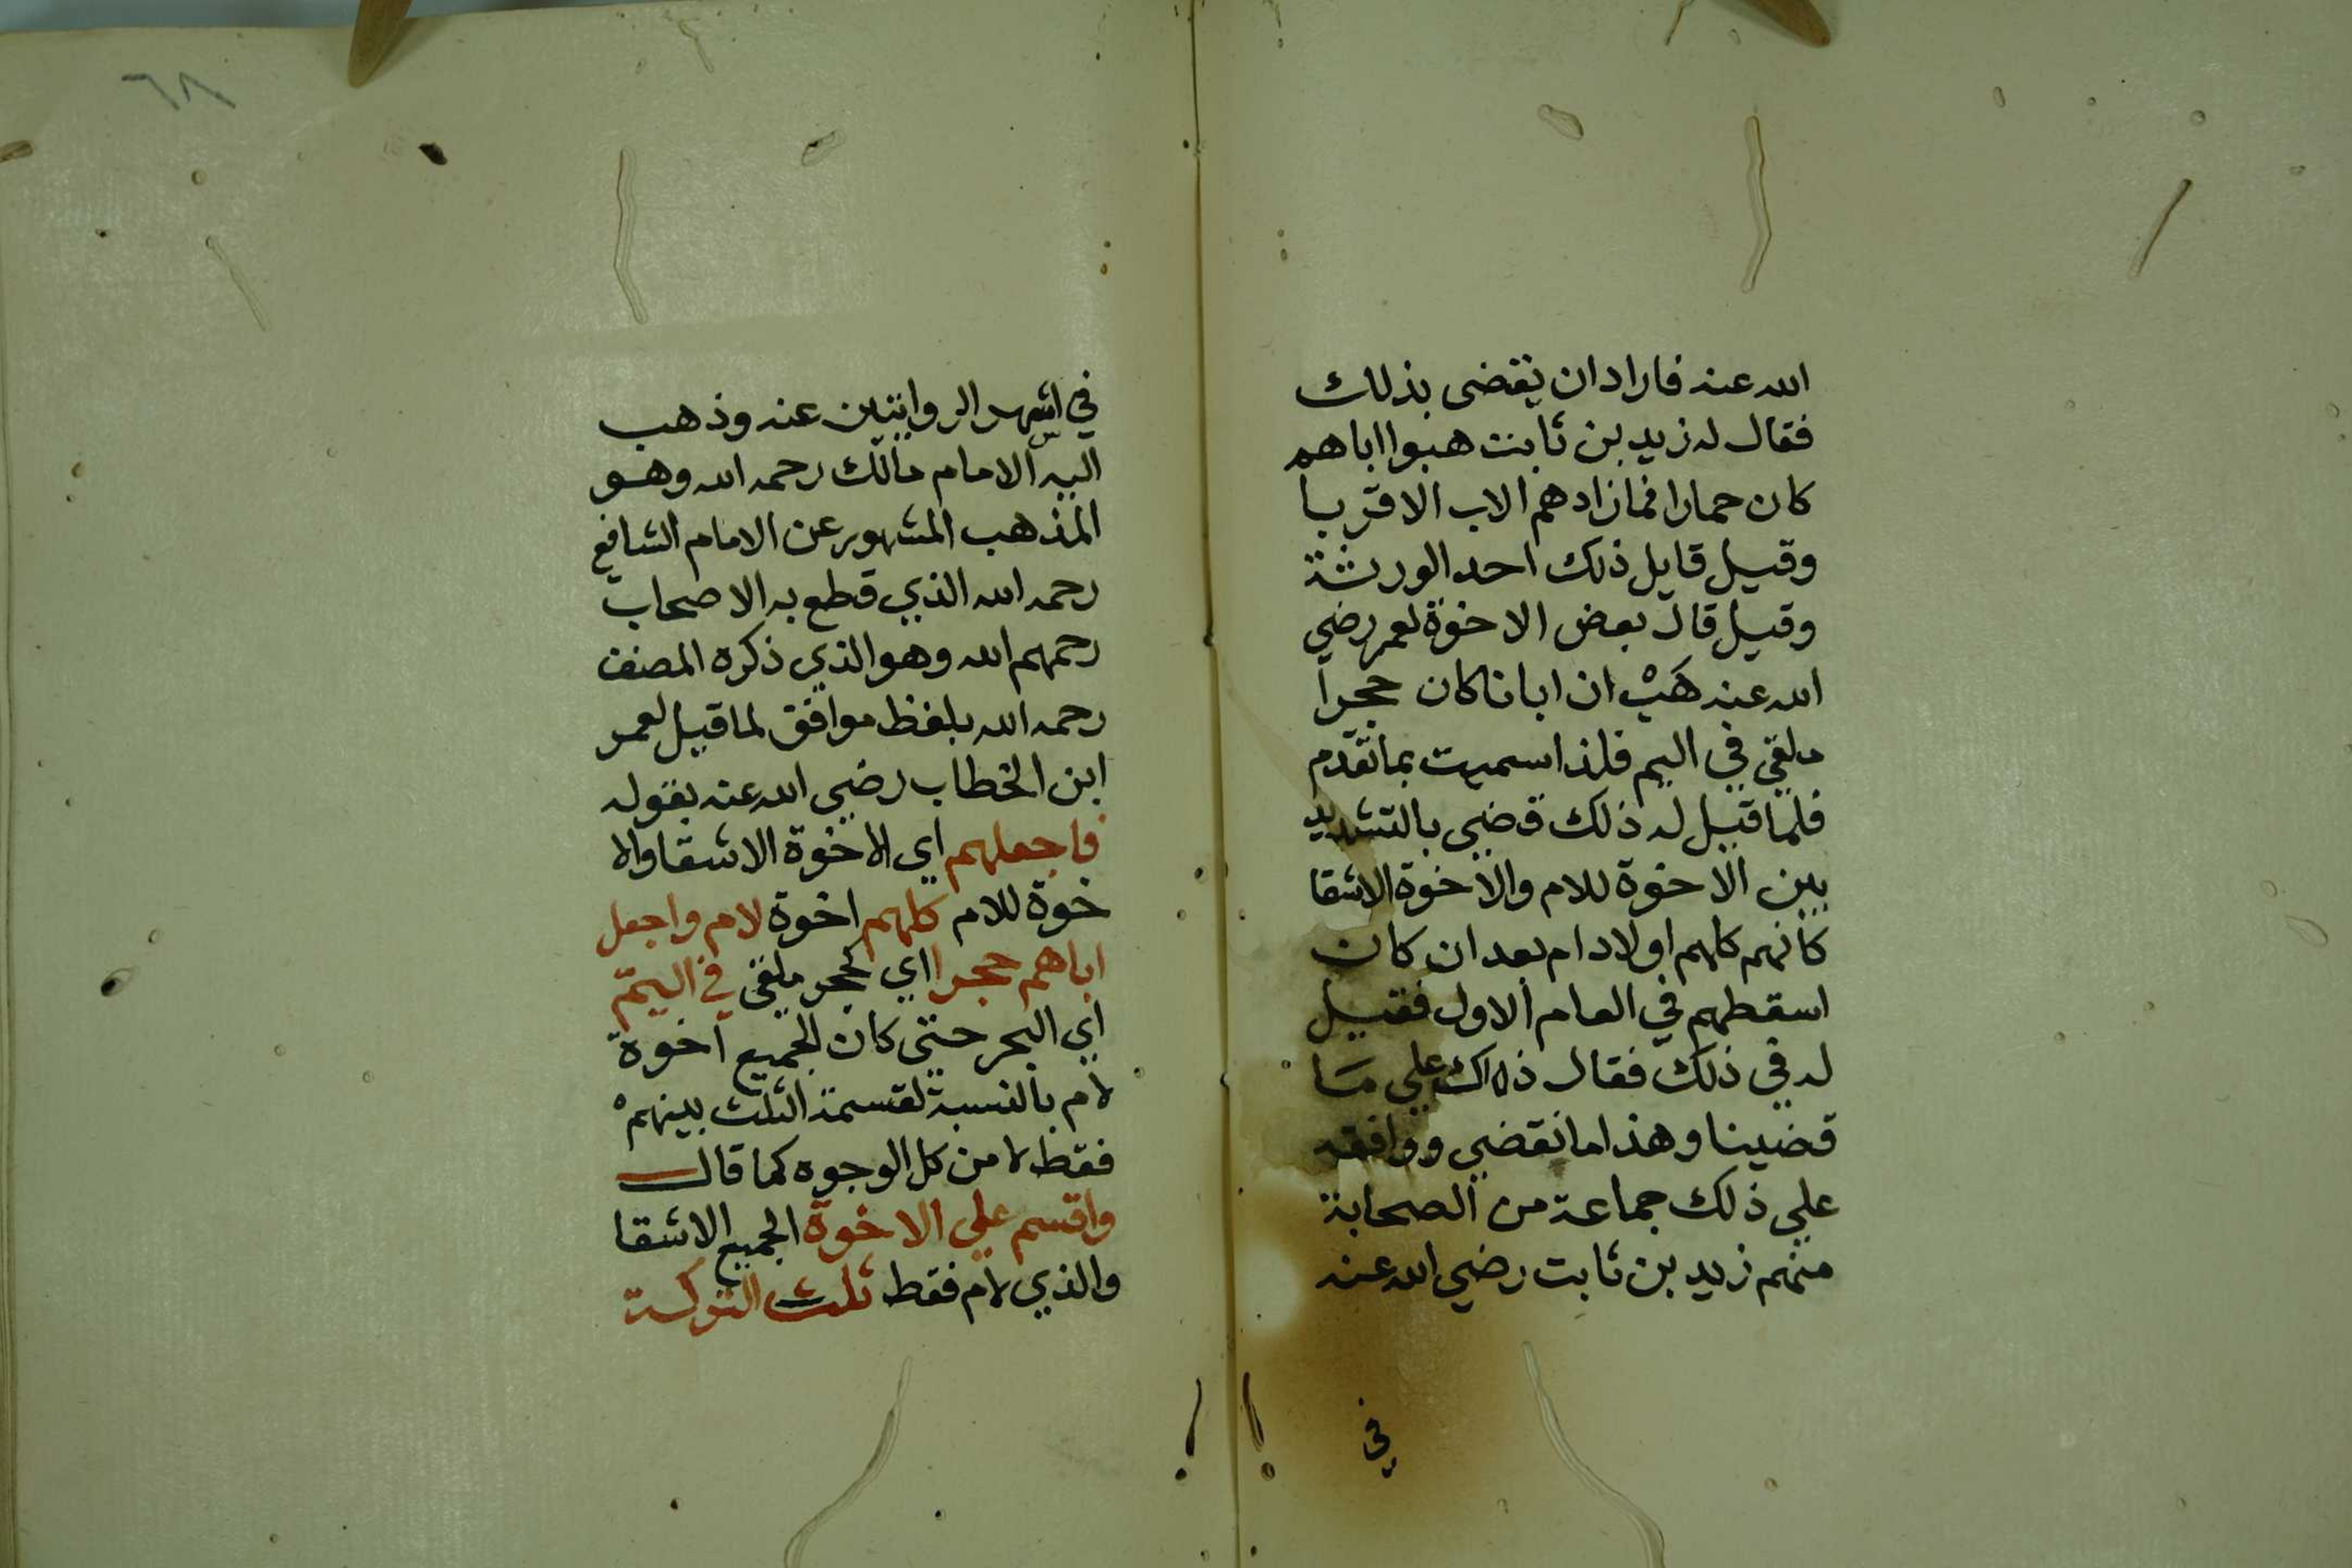 الله عنه فاراد ان يقضى بذلك
فقال له زيد بن ثابت هبوا اباهم
كان حمارا فما زادهم الاب الا قربا
وقيل قايل ذلك احد الورثة
وقيل قال بعض الاخوة لعمر رضي
الله عنه هَبْ ان ابانا كان حجرا
ملقي في اليم فلذا سميت بما تقدم
فلما قيل له ذلك قضي بالتشديد
بين الاخوة للام والاخوة الاشقا
كانهم كلهم اولاد ام بعد ان كان
اسقطهم في العام الاول فقيل
له في ذلك فقال ذاك علي ما
قضينا وهذا ما نقضي ووافقه
علي ذلك جماعة من الصحابة
منهم زيد بن ثابت رضي الله عنه
في
٦٨
في اشهر الروايتين عنه وذهب
اليه الامام مالك رحمه الله وهو
المذهب المشهور عن الامام الشافع
رحمه الله الذي قطع به الاصحاب
رحمهم الله وهو الذي ذكره المصنف
رحمه الله بلفظ موافق لما قيل لعمر
ابن الخطاب رضي الله عنه بقوله
فاجعلهم اي الاخوة الاشقا والا
خوة للام كلهم اخوة لام واجعل
اباهم حجرا اي كحجر ملقي في اليمّ
اي البحر حتي كان الجميع اخوة
لام بالنسبة لقسمة الثلث بينهم
فقط لا من كل الوجوه كما قال
واقسم علي الاخوة الجميع الاشقا
والذي لام فقط ثلث التركة